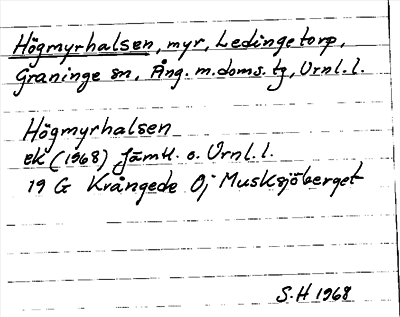 Högmyrhalsen, myr, Ledingetorp,
Graninge sn, Ång. m. doms. tg, Vrnl. l.
Högmyrhalsen
ek (1968) Jämtl. o. Vrnl. l.
19 G Krångede 0j Musksjöberget
S.H 1968